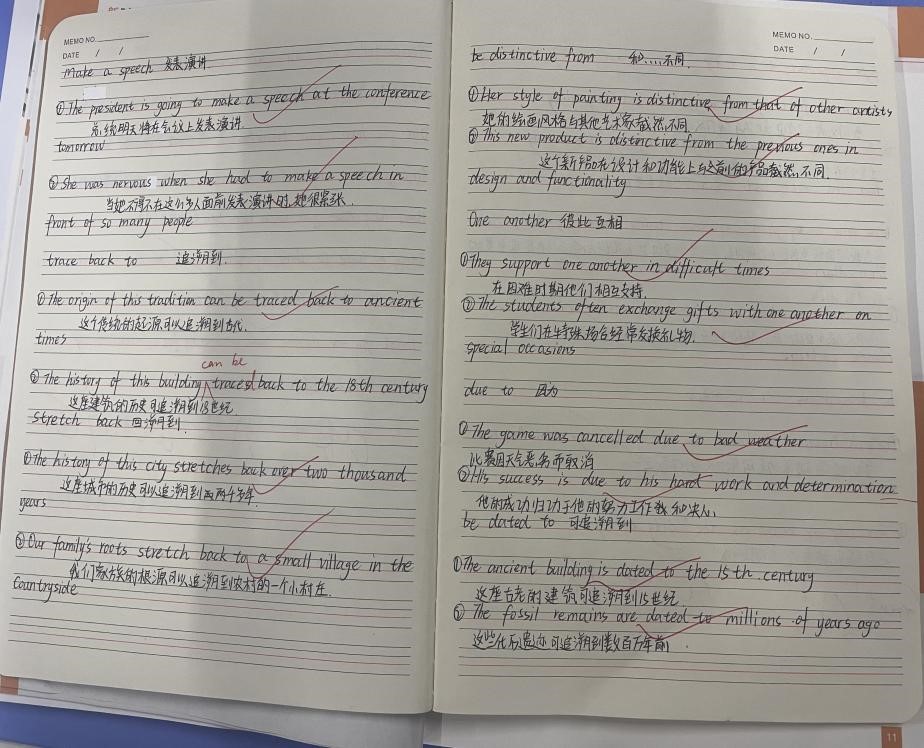 MEMO NO.
DATE / /
Make a speech 发表演讲
①The president is going to make a speech at the conference
总统明天将在会议上发表演讲.
tomorrow
②She was nervous when she had to make a speech in
当她不得不在这么多人面前发表演讲时,她很紧张.
front of so many people
trace back to 追溯到.
①The origin of this tradition can be traced back to ancient
这个传统的起源可以追溯到古代.
times
can be
②The history of this building traced back to the 18th century
这座建筑的历史可追溯到18世纪.
stretch back 回溯到.
①The history of this city stretches back over two thousand
这座城市的历史可以追溯到两千多年.
years
②Our family's roots stretch back to a small village in the
我们家族的根源可以追溯到农村的一个小村庄.
Countryside
MEMO NO.
DATE / /
be distinctive from 和....不同.
①Her style of painting is distinctive from that of other artists
她的绘画风格与其他艺术家截然不同.
②This new product is distinctive from the previous ones in
这个新产品在设计和功能上与之前的产品截然不同.
design and functionality
One another 彼此互相
①They support one another in difficult times
在困难时期他们相互支持.
②The students often exchange gifts with one another on
学生们在特殊场合经常交换礼物.
special occasions
due to 因为
①The game was cancelled due to bad weather
比赛因天气恶劣而取消
②His success is due to his hard work and determination
他的成功归功于他的努力工作和决心.
be dated to 可追溯到
①The ancient building is dated to the 15th century
这座古老的建筑可追溯到15世纪
② The fossil remains are dated to millions of years ago
这些化石遗迹可追溯到数百万年前.
11